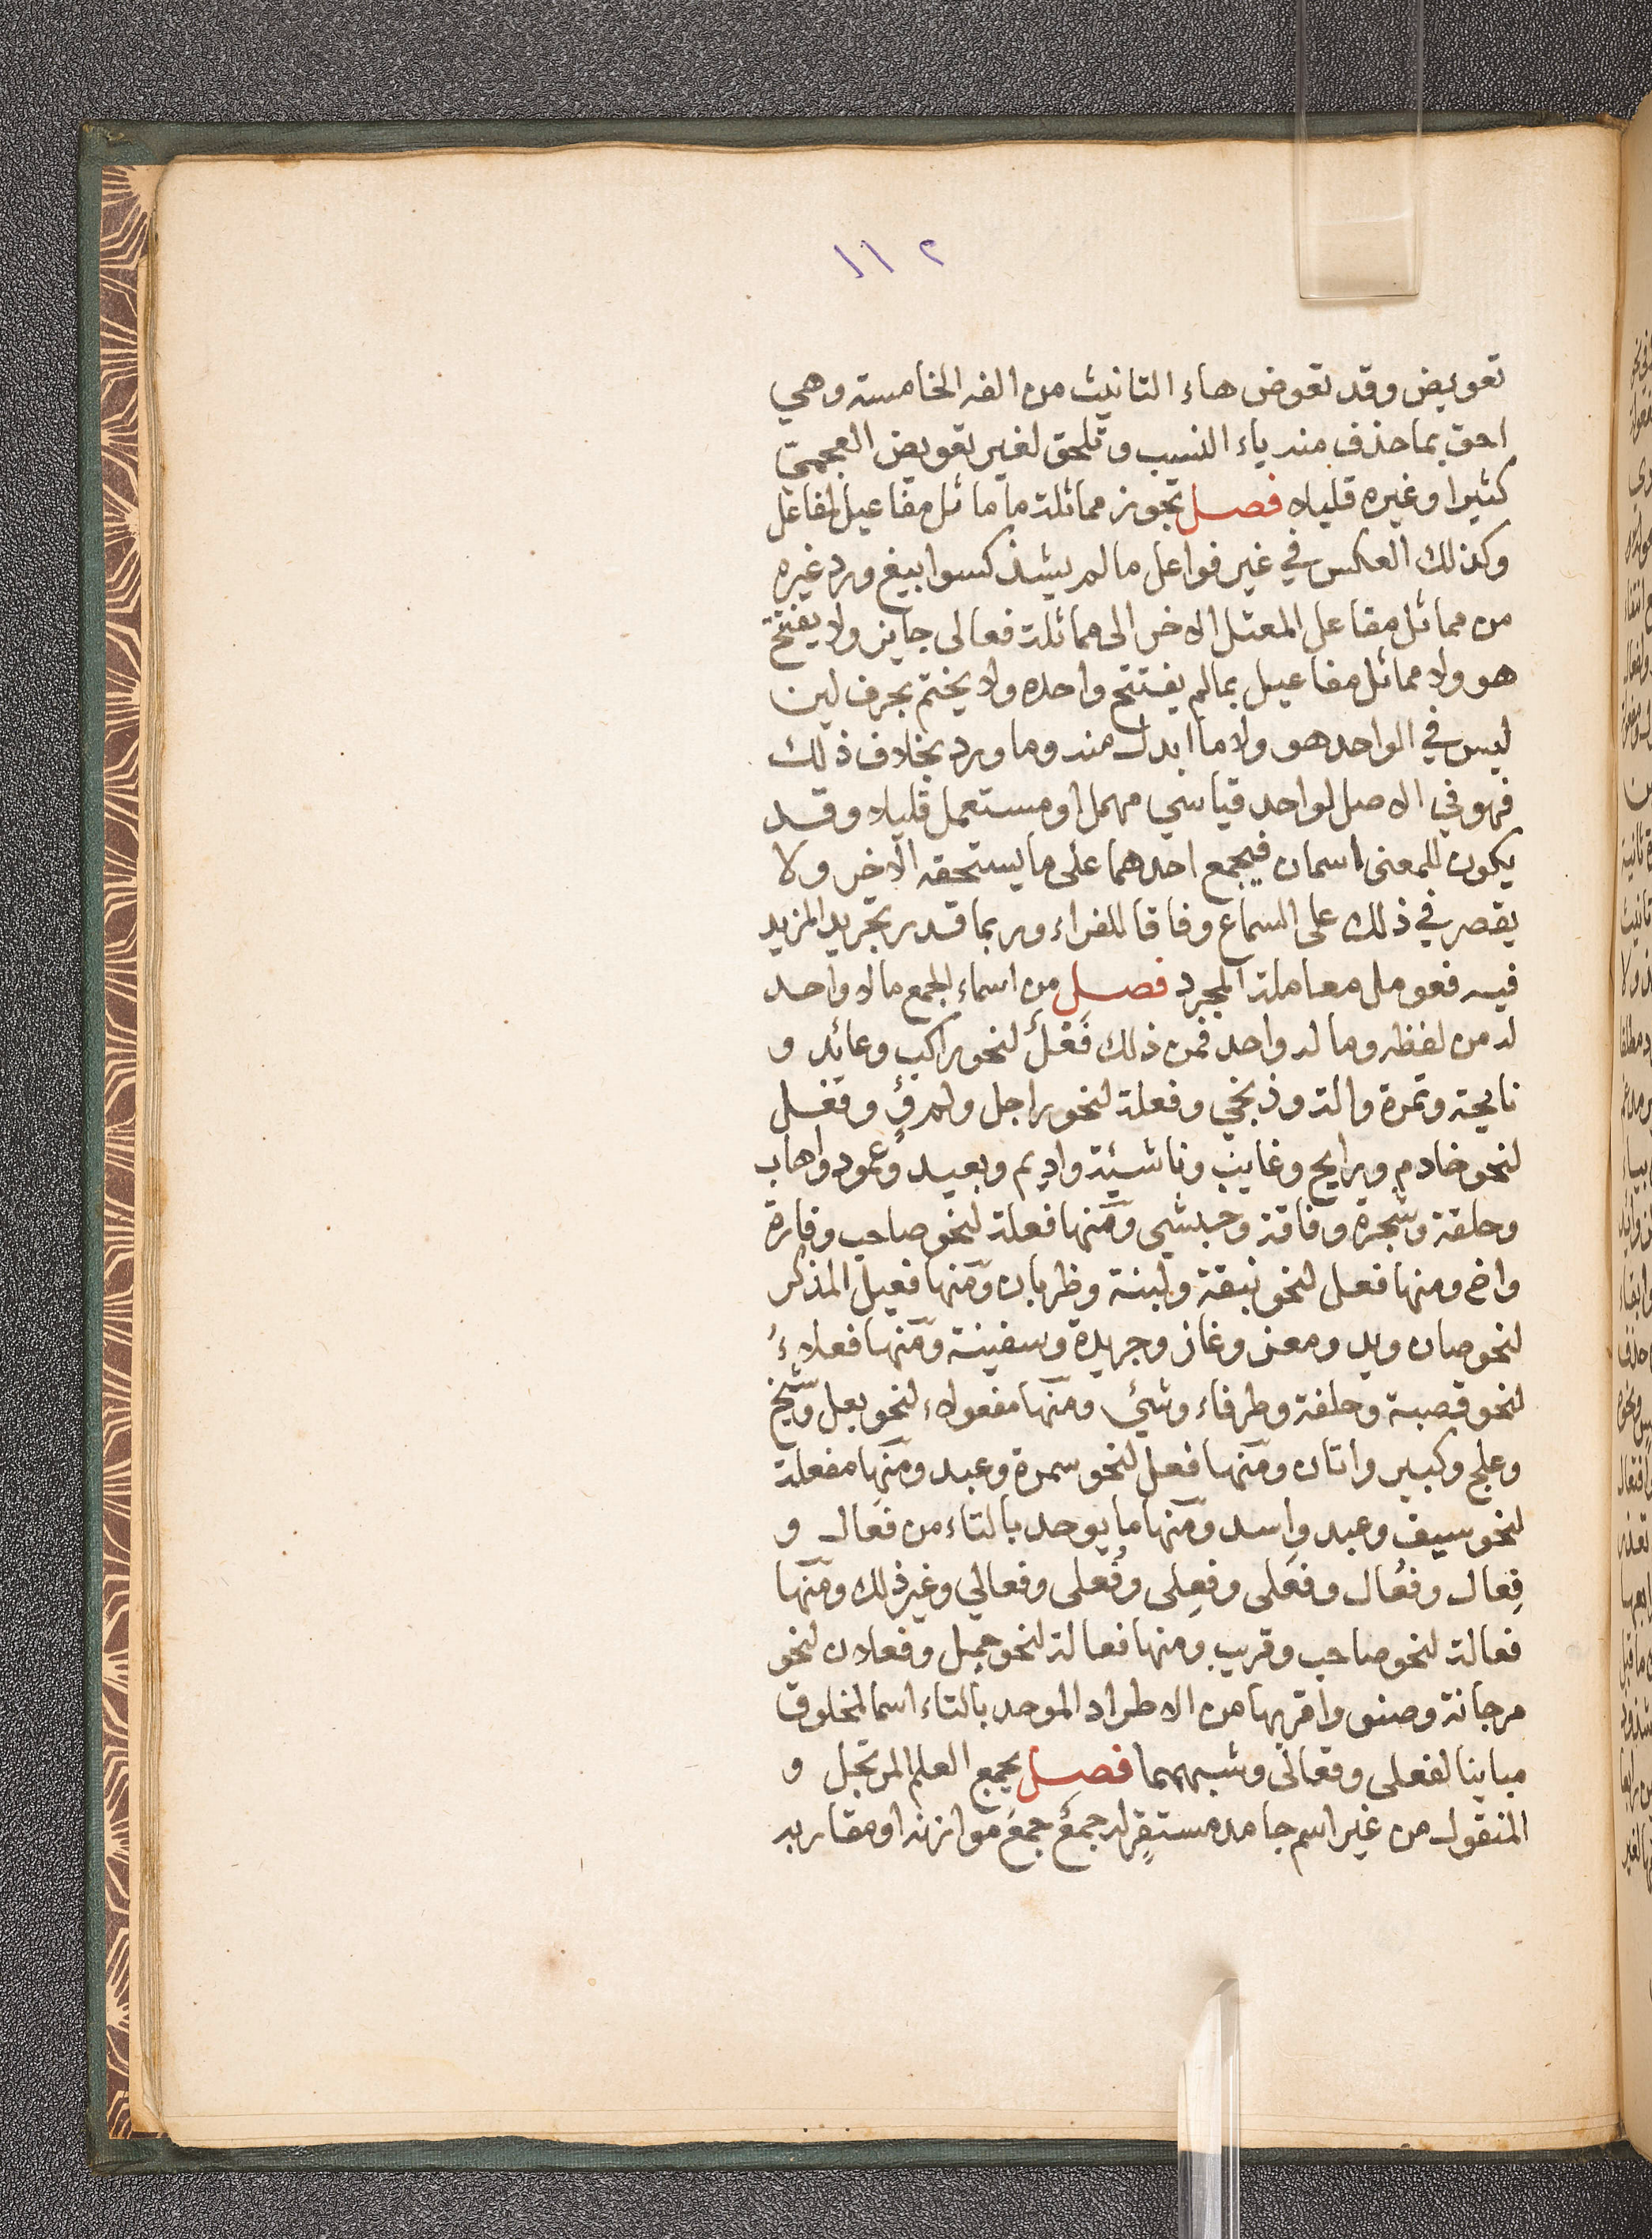 ١١٢
تعويض وقد تعوض هاء التانيث من الفه الخامسة وهي
احق بما حذف منه ياء النسب وتلحق لغير تعويض العجمي
كثيرا وغيره قليلا فصل تجوز مماثلة ما ماثل مفاعيل لمفاعل
وكذلك العكس في غير فواعل ما لم يشذ كسوابيغ ورد غيره
من مماثل مفاعل المعتل الاخر الى مماثلة فعالى جايز ولا يفتتح
هو ولا مماثل مفاعيل بما لم يفتتح واحده ولا يختم بحرف لين
ليس في الواحد هو ولا ما ابدل منه وما ورد بخلاف ذلك
فهو في الاصل لواحد قياسي مهمل او مستعمل قليلا وقد
يكون للمعنى اسمان فيجمع احدهما على ما يستحقه الاخر ولا
يقصر في ذلك على السماع وفاقا للفراء وربما قدر تجريد المزيد
فيه فعومل معاملة المجرد فصل من اسماء الجمع ما لا واحد
له من لفظه وما له واحد فمن ذلك فعل لنحو راكب وعائد و
نايحة وتمرة والة وذبخي وفعلة لنحو راجل وفعل
لنحو خادم ورايح وغايب وناشئة واديم وبعيد وعمود واهاب
وحلقة وشجرة وفاقة وحبشي ومنها فعلة لنحو صاحب وفارة
واخ ومنها فعل لنحو نبقة ولبنة وظربان ومنها فعيل المذكر
لنحو ضان ويد ومعز وغاز وجريدة وسفينة ومنها فعلاء
لنحو قصبة وحلفة وطرفاء وشئ ومنها مفعولاء لنحو بعل وشيخ
وعلج وكبير واتان ومنها فعل لنحو سمرة وعبد ومنها مفعلة
لنحو سيف وعبد واسد ومنها ما يوحد بالتاء من فعال و
فِعال وفُعال وفَعلى وفِعلى وفُعلى وفعالي وغير ذلك ومنها
فعالة لنحو صاحب وقريب ومنها فعالة لنحو جميل وفعلان لنحو
مرجانة وصنو واقربها من الاطراد الموحد بالتاء اسما لمخلوق
مباينا لفعلى وفعالى وشبههما فصل يجمع العلم المرتجل و
المنقول من غير اسم جامد مستقر له جمع جمع موازنه او مقاربه